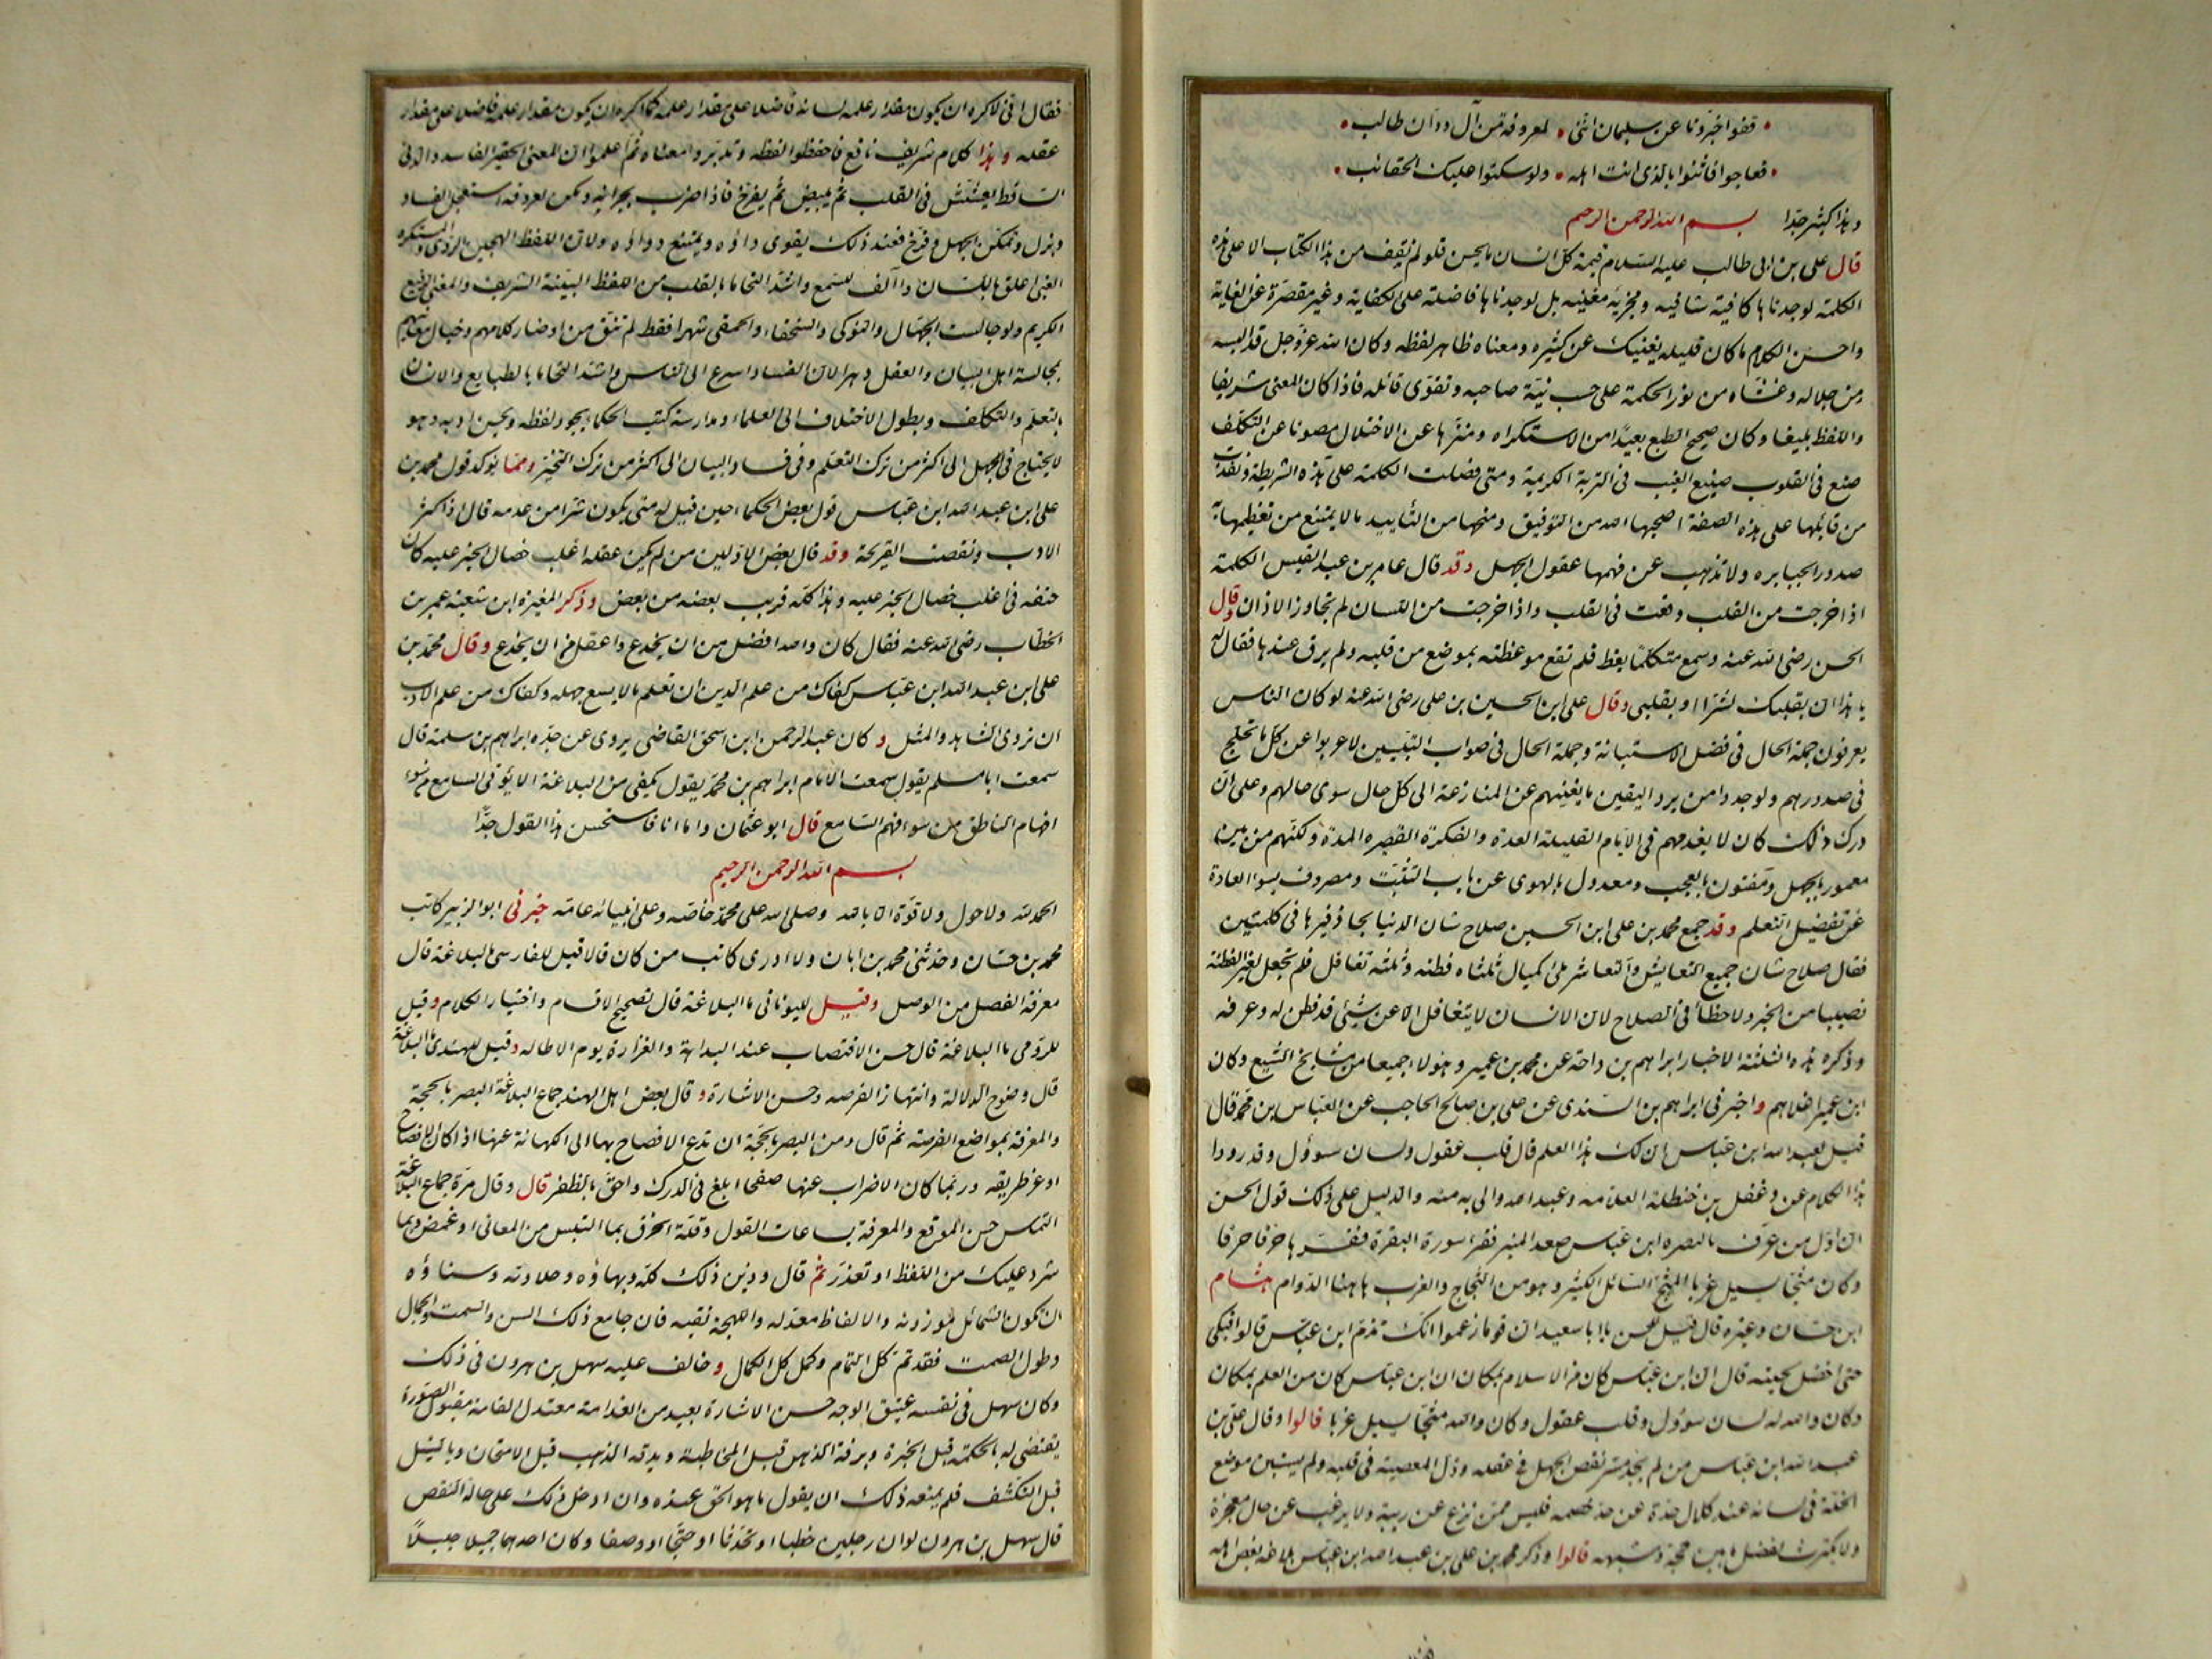 قفوا خبرونا عن سليمان انني لمعروفه من آل ودان طالب
فعاجوا فاثنوا بالذي انت اهله ولو سكتوا عليك الحقائب
وهذا كثير جدّا بسم الله الرحمن الرحيم
قال علي بن ابي طالب عليه السلام قيمة كل انسان ما يحسن فلو لم نقف من هذا الكتاب الا على هذه
الكلمة لوجدناها كافية شافيه ومجزية مغنيه بل لوجدناها فاضلة على الكفاية وغير مقصرة عن الغاية
واحسن الكلام ما كان قليله يغنيك عن كثيره ومعناه ظاهر لفظه وكان الله عز وجل قد البسه
من جلاله وغشاه من نور الحكمة على حسب نية صاحبه وتقوى قائله فاذا كان المعنى شريفا
واللفظ بليغا وكان صحيح الطبع بعيدا من الاستكراه ومنزها عن الاختلال مصونا عن التكلف
صنع في القلوب صنيع الغيث في التربة الكريمة ومتى فصلت الكلمة على هذه الشريطة ونفذت
من قايلها على هذه الصفة اصحبها الله من التوفيق ومنحها من التأييد ما لا يمتنع من تعظيمها به
صدور الجبابره ولا تذهب عن فهمها عقول الجهل وقد قال عامر بن عبد القيس الكلمة
اذا خرجت من القلب وقعت في القلب واذا خرجت من اللسان لم تجاوز الاذان وقال
الحسن رضي الله عنه وسمع متكلما يعظ فلم تقع موعظته بموضع من قلبه ولم يرق عندها فقال له
يا هذا ان بقلبك لشرا او بقلبي وقال علي ابن الحسين بن علي رضي الله عنه لو كان الناس
يعرفون جملة الحال في فضل الاستبانة وجملة الحال في صواب التبيين لاعربوا عن كل ما تخلج
في صدورهم ولوجدوا من برد اليقين ما يغنيهم عن المنازعة الى كل حال سوى حالهم وعلى ان
درك ذلك كان لا يعدمهم في الايام القليلة العدة والفكرة القصيره المدة ولكنهم من بين
معمور بالجهل ومفتون بالعجب ومعدول بالهوى عن باب التثبت ومصروف بسوء العادة
عن تفضيل التعلم وقد جمع محمد بن علي ابن الحسين صلاح شان الدنيا بحذافيرها في كلمتين
فقال صلاح شان جميع التعايش والتعاشر ملئ مكيال ثلثاه فطنه وثلثه تغافل فلم تجعل لغير الفطنة
نصيبا من الخير ولا حظا في الصلاح لان الانسان لا يتغافل الا عن شيئ قد فطن له وعرفه
وذكر هذه الثلثة الاخبار ابراهيم بن داحة عن محمد بن عمير وهؤلاء جميعا من مشايخ الشيع وكان
ابن عمير اغلاهم واخبرني ابراهيم بن السندي عن علي بن صالح الحاجب عن العباس بن محمد قال
قيل لعبد الله ابن عباس انى لك هذا العلم قال قلب عقول ولسان سوؤل وقد رووا
هذا الكلام عن دغفل بن حنظلة العلامه وعبد الله اولى به منه والدليل على ذلك قول الحسن
ان اول من عرف بالبصره ابن عباس صعد المنبر فقرا سورة البقرة ففسرها حرفا حرفا
وكان مثجا يسيل غربا المثج السائل الكثير وهو من الثجاج والغرب هاهنا الدوام هشام
ابن حسان وغيره قال قيل للحسن يا ابا سعيد ان قوما زعموا انك تذم ابن عباس قالوا فبكى
حتى اخضل لحيته قال ان ابن عباس كان من الاسلام بمكان ان ابن عباس كان من العلم بمكان
وكان والله له لسان سوؤل وقلب عقول وكان والله مثجا يسيل غربا قالوا وقال علي بن
عبد الله ابن عباس من لم يجد مس نقص الجهل في عقله وذل المعصية في قلبه ولم يستبن موضع
الخلة في لسانه عند كلال حده عن حد خصمه فليس ممن نزع عن ريبة ولا يرغب عن حال معجزة
ولا يكترث لفضل ما بين حجة وشبهه قالوا وذكر محمد بن علي بن عبد الله ابن عباس بلاغة بعض اهله
فقال اني لاكره ان يكون مقدار علمه لسانه فاضلا على مقدار علمه كما اكره ان يكون مقدار علمه فاضلا على مقدار
عقله وهذا كلام شريف نافع فاحفظوا لفظه وتدبروا معناه ثم اعلموا ان المعنى الحقير الفاسد والدني
الساقط يعشش في القلب ثم يبيض ثم يفرخ فاذا ضرب بجرانه ومكن لعروقه استفحل الفساد
وبزل وتمكن الجهل وفرخ فعند ذلك يقوى داؤه ويمتنع دواؤه ولان اللفظ الهجين الردي والمستكره
الغبي اعلق باللسان واآلف للسمع واشد التحاما بالقلب من اللفظ البينة الشريف والمعنى الرفيع
الكريم ولو جالست الجهال والنوكى والسخفاء والحمقى شهرا فقط لم تنق من اوضار كلامهم وخبال معانيهم
بمجالسة اهل البيان والعقل دهرا لان الفساد اسرع الى الناس واشد التحاما بالطبايع والانسان
بالتعلم والتكلف وبطول الاختلاف الى العلماء ومدارسة كتب الحكماء يجود لفظه ويحسن ادبه وهو
لا يحتاج في الجهل الى اكثر من ترك التعلم وفي فساد البيان الى اكثر من ترك التخير ومما يوكد قول محمد بن
علي ابن عبد الله ابن عباس قول بعض الحكماء حين قيل له متى يكون شرا من عدمه قال اذا كثر
الادب ونقصت القريحة وقد قال بعض الاولين من لم يكن عقله اغلب خصال الخير عليه كان
حتفه في اغلب خصال الخير عليه وهذا كله قريب بعضه من بعض وذكر المغيرة ابن شعبة عمر بن
الخطاب رضي الله عنه فقال كان والله افضل من ان يخدع واعقل من ان يخدع وقال محمد بن
علي ابن عبد الله ابن عباس كفاك من علم الدين ان تعلم ما لا يسع جهله وكفاك من علم الادب
ان تروي الشاهد والمثل وكان عبد الرحمن ابن اسحق القاضي يروي عن جده ابراهيم بن سلمة قال
سمعت ابا مسلم يقول سمعت الامام ابراهيم بن محمد يقول يكفي من البلاغة الا يؤتى السامع من سوء
افهام الناطق من سوء فهم السامع قال ابو عثمان واما انا فاستحسن هذا القول جدّا
بسم الله الرحمن الرحيم
الحمد لله ولا حول ولا قوة الا بالله وصلى الله على محمد خاصه وعلى انبيائه عامه خبرني ابو الزبير كاتب
محمد بن حسان وحدثني محمد بن ابان ولا ادري كاتب من كان قالا قيل للفارسي ما البلاغة قال
معرفة الفصل من الوصل وقيل لليوناني ما البلاغة قال تصحيح الاقسام واختيار الكلام وقيل
للرومي ما البلاغة قال حسن الاقتصاب عند البداهة والغزارة يوم الاطاله وقيل للهندي ما البلاغة
قال وضوح الدلالة وانتهاز الفرصه وحسن الاشارة وقال بعض اهل الهند جماع البلاغة البصر بالحجة
والمعرفة بمواضع الفرصة ثم قال ومن البصر بالحجة ان تدع الافصاح بها الى الكهانة عنها اذا كان الافصاح
اوعر طريقه وربما كان الاضراب عنها صفحا ابلغ في الدرك واحق بالظفر قال وقال مرة جماع البلاغة
التماس حسن الموقع والمعرفة بساعات القول وقلة الخرق بما التبس من المعاني او غمض وبما
شرد عليك من اللفظ او تعذر ثم قال وزين ذلك كله وبهاؤه وحلاوته وسناؤه
ان تكون الشمائل موزونه والالفاظ معدله واللهجة نقيه فان جامع ذلك السن والسمت والجمال
وطول الصمت فقد تم كل التمام وكمل كل الكمال وخالف عليه سهل بن هرون في ذلك
وكان سهل في نفسه عتيق الوجه حسن الاشارة بعيد من الفدامة معتدل القامة مقبول الصورة
يقتضى له بالحكمة قبل الخبرة وبرقة الذهن قبل المخاطبة وبدقه المذهب قبل الامتحان وبالنبل
قبل التكشف فلم يمنعه ذلك ان يقول ما هو الحق عنده وان ادخل ذلك على حاله النقص
قال سهل بن هرون لو ان رجلين خطبا او تحدثا او احتجا او وصفا وكان احدهما جميلا جليلاً